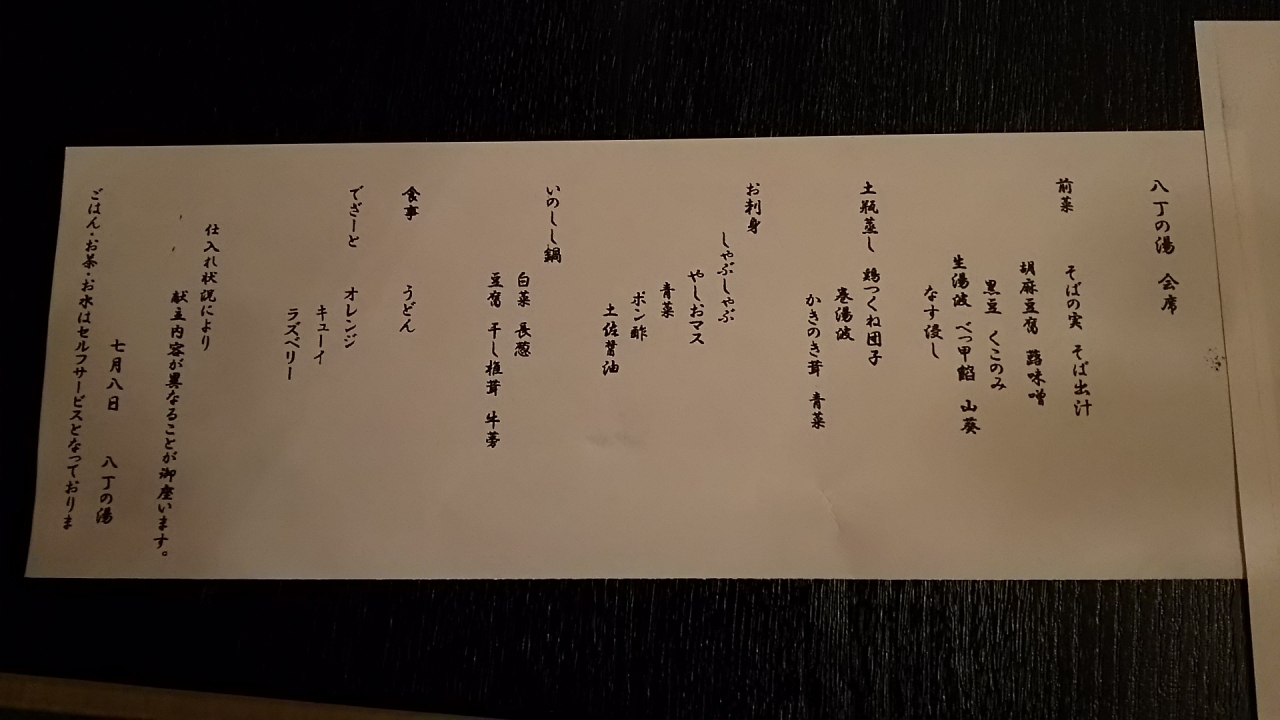 八丁の湯 会席
前菜 そばの実 そば出汁
胡麻豆腐 蕗味噌
黒豆 くこのみ
生湯波 べっ甲餡 山葵
なす浸し
土瓶蒸し 鶏つくね団子
巻湯波
かきのき茸 青菜
お刺身
しゃぶしゃぶ
やしおマス
青菜
ポン酢
土佐醤油
いのしし鍋
白菜 長葱
豆腐 干し椎茸 牛蒡
食事 うどん
でざーと オレンジ
キューイ
ラズベリー
仕入れ状況により
献立内容が異なることが御座います。
七月八日 八丁の湯
ごはん・お茶・お水はセルフサービスとなっておりま